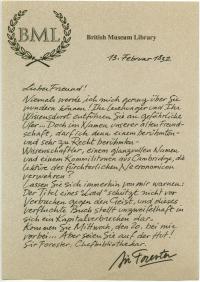 BML
British Museum Library
13. Februar 1932
Lieber Freund!
Niemals werde ich mich genug über Sie
wundern können! Ihr Wissensdurst entführen Sie an gefährliche
Ufer... Darf im Namen unserer alten Freund-
schaft, darf ich denn einem berühmten -
und sehr zu Recht berühmten -
Wissenschaftler, einem glanzvollen Namen
und einem Kommilitonen aus Cambridge, die
Lektüre des fürchterlichen Necronomicon
verwehren?
Lassen Sie sich immerhin von mir warnen:
Der Titel eines „Lord" schützt nicht vor
Verbrechen gegen den Geist, und dieses
verfluchte Buch stellt unzweifelhaft in
sich ein Kapitalverbrechen dar.
Kommen Sie Mittwoch, den 20. bei mir
vorbei... Aber seien Sie auf der Hut!
Sir Forester, Chefbibliothekar
Sir Forester